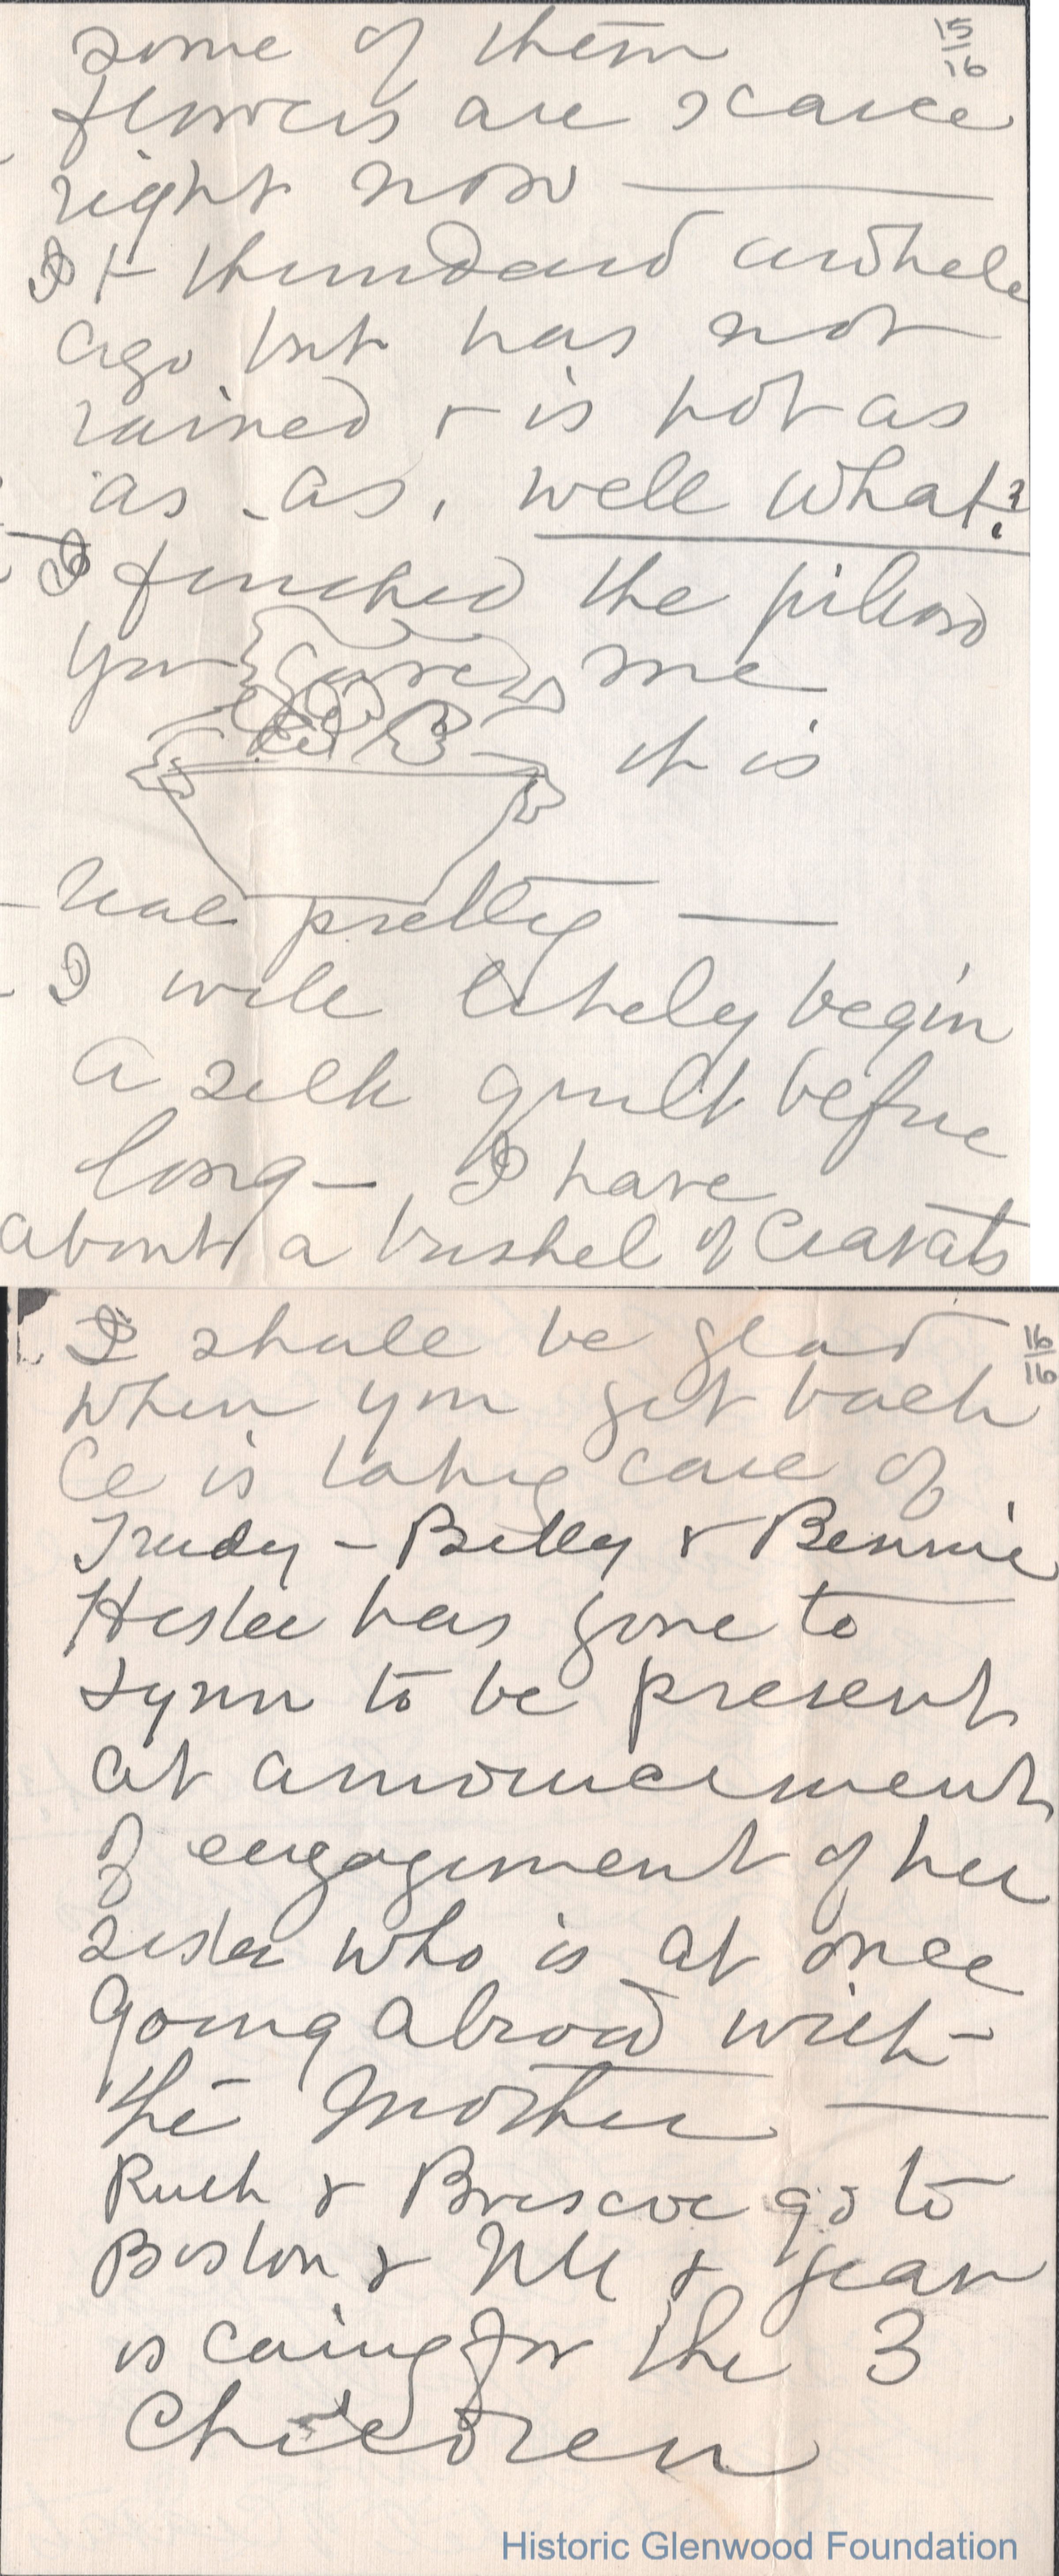 some of them
15
16
flowers are scarce
right now —
It thundered awhile
ago but has not
rained & is hot as
as - as, well what?
I finished the pillow
you gave me
it is
real pretty —
I will likely begin
a silk quilt before
long — I have
about a bushel of Cravats
I shall be glad
16
16
when you get back
Ce is taking care of
Trudy - Billy & Bennie
Hester has gone to
Lynn to be present
at announcement
of engagement of her
sister who is at once
going abroad with
the mother —
Ruth & Briscoe go to
Boston & NY & Jean
is caring for the 3
Children
Historic Glenwood Foundation